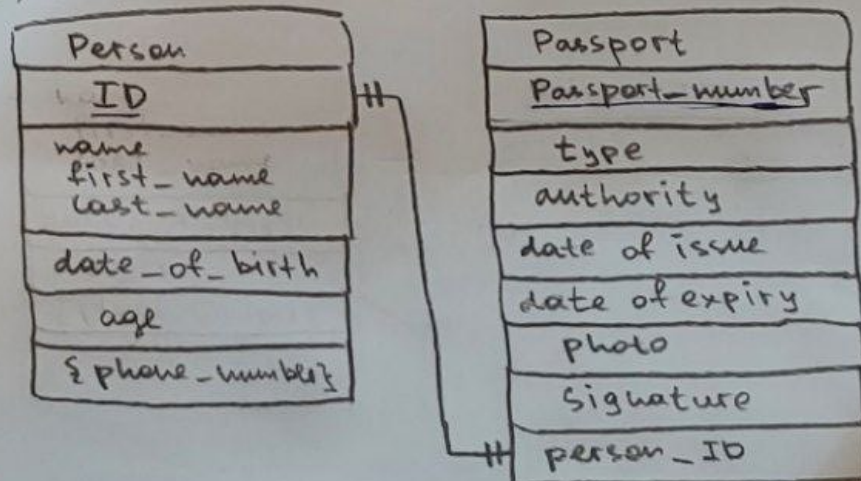 Person
ID
name
first_name
last_name
date_of_birth
age
{phone_number}
Passport
Passport_number
type
authority
date of issue
date of expiry
photo
signature
person_ID